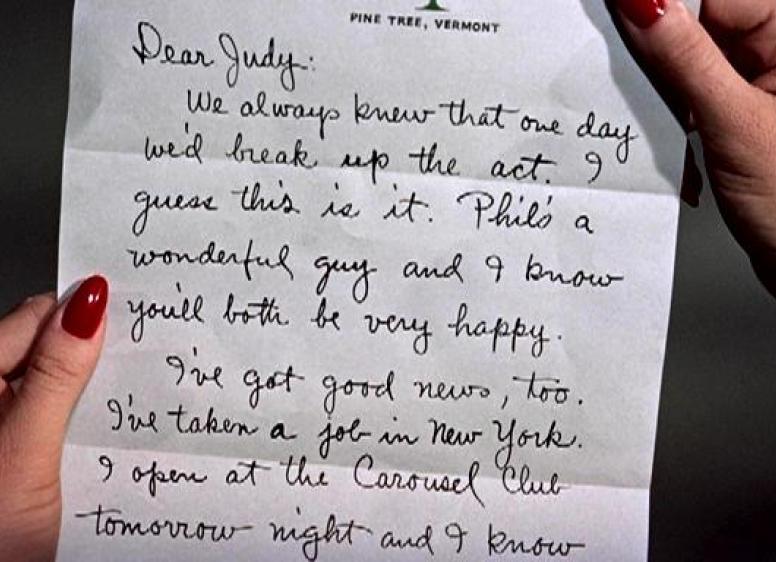 PINE TREE, VERMONT
Dear Judy:
We always knew that one day
we'd break up the act. I
guess this is it. Phil's a
wonderful guy and I know
you'll both be very happy.
I've got good news, too.
I've taken a job in New York.
I open at the Carousel Club
tomorrow night and I know